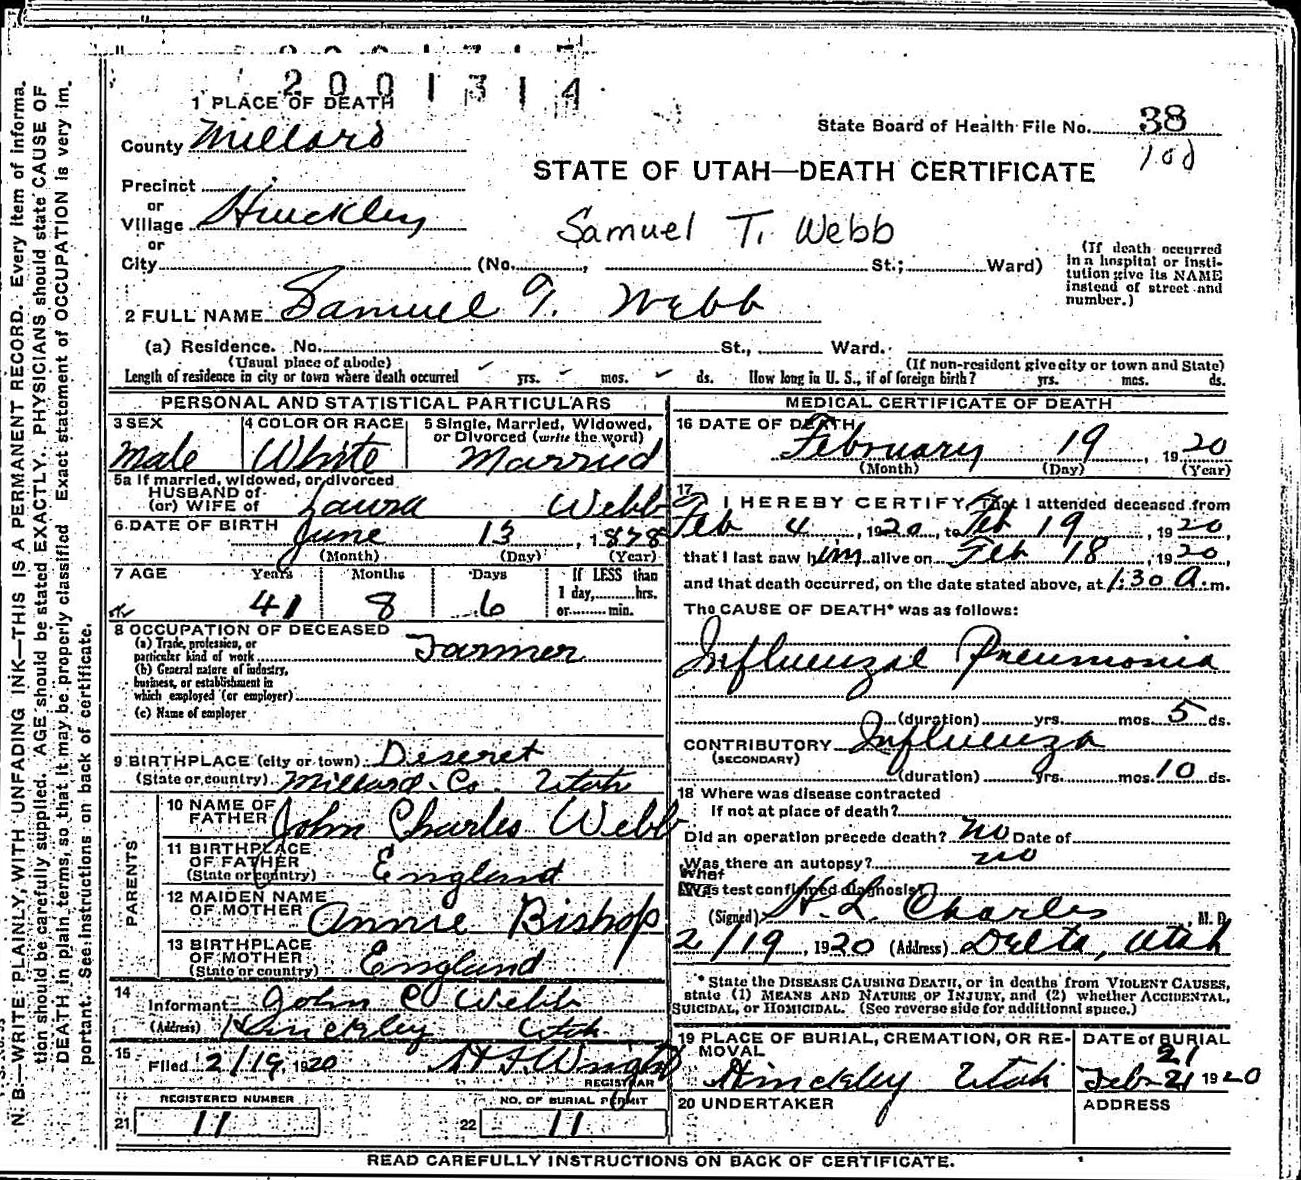 2001314
1 PLACE OF DEATH
County Millard
State Board of Health File No. 38
108
STATE OF UTAH—DEATH CERTIFICATE
Precinct
or
Village Hinckley
Samuel T. Webb
or
City (No. , St.; Ward)
(If death occurred in a hospital or insti-
tution give its NAME
instead of street and
number.)
2 FULL NAME Samuel T. Webb
(a) Residence. No. St., Ward.
(Usual place of abode) (If non-resident give city or town and State)
Length of residence in city or town where death occurred yrs. mos. ds. How long in U. S., if of foreign birth? yrs. mos. ds.
PERSONAL AND STATISTICAL PARTICULARS
3 SEX 4 COLOR OR RACE 5 Single, Married, Widowed,
or Divorced (write the word)
Male White Married
5a If married, widowed, or divorced
HUSBAND of
(or) WIFE of Laura Webb
6 DATE OF BIRTH June 13, 1878
(Month) (Day) (Year)
7 AGE Years Months Days If LESS than
1 day, hrs.
41 8 6 or min.
8 OCCUPATION OF DECEASED
(a) Trade, profession, or
particular kind of work Farmer
(b) General nature of industry,
business, or establishment in
which employed (or employer)
(c) Name of employer
9 BIRTHPLACE (city or town) Deseret
(State or country) Millard Co. Utah
PARENTS
10 NAME OF
FATHER John Charles Webb
11 BIRTHPLACE
OF FATHER
(State or country) England
12 MAIDEN NAME
OF MOTHER Annie Bishop
13 BIRTHPLACE
OF MOTHER
(State or country) England
14
Informant John C Webb
(Address) Hinckley Utah
15
Filed 2/19, 1920 Wright
REGISTRAR
REGISTERED NUMBER NO. OF BURIAL PERMIT
21 11 22 11
MEDICAL CERTIFICATE OF DEATH
16 DATE OF DEATH
February 19, 1920
(Month) (Day) (Year)
17
I HEREBY CERTIFY, That I attended deceased from
Feb 4, 1920, to Feb 19, 1920,
that I last saw him alive on Feb 18, 1920,
and that death occurred, on the date stated above, at 1:30 A. m.
The CAUSE OF DEATH* was as follows:
Influenzal Pneumonia
(duration) yrs. mos. 5 ds.
CONTRIBUTORY Influenza
(SECONDARY)
(duration) yrs. mos. 10 ds.
18 Where was disease contracted
If not at place of death?
Did an operation precede death? no Date of
Was there an autopsy? no
What
test confirmed diagnosis?
(Signed) H. L. Charles, M. D.
2/19, 1920 (Address) Delta, Utah
* State the DISEASE CAUSING DEATH, or in deaths from VIOLENT CAUSES,
state (1) MEANS AND NATURE OF INJURY, and (2) whether ACCIDENTAL,
SUICIDAL, or HOMICIDAL. (See reverse side for additional space.)
19 PLACE OF BURIAL, CREMATION, OR RE-
MOVAL
Hinckley Utah
DATE of BURIAL
21
Feb 21 1920
20 UNDERTAKER ADDRESS
READ CAREFULLY INSTRUCTIONS ON BACK OF CERTIFICATE.
N. B.—WRITE PLAINLY, WITH UNFADING INK—THIS IS A PERMANENT RECORD. Every item of informa-
tion should be carefully supplied. AGE should be stated EXACTLY. PHYSICIANS should state CAUSE OF
DEATH in plain terms, so that it may be properly classified. Exact statement of OCCUPATION is very im-
portant. See instructions on back of certificate.